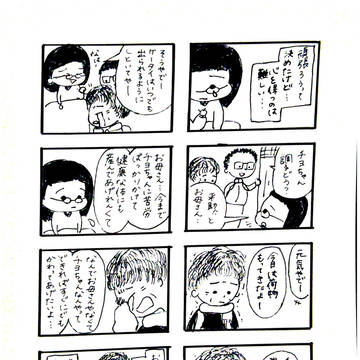 頑張ろうって
決めたけど…
心を保つのは
難しい…
チヨちゃん
調子どう?
お母さん…
元気やでー
今日は荷物
もってきたよー
そうやでー
ケータイはいつでも
出られるように
しといてやー
お母さん…今まで
チヨちゃんに苦労
ばっかりかけて
健康な体にも
産んであげれんくて
なんでお母さんやなくて
チヨちゃんなんやって
できればすぐにでも
かわってあげたいよ…